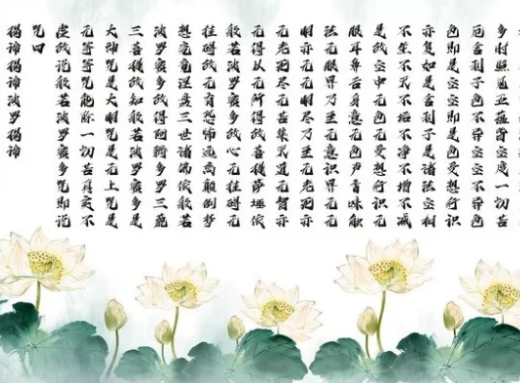 多时照见五蕴皆空度一切苦
厄舍利子色不异空空不异色
色即是空空即是色受想行识
亦复如是舍利子是诸法空相
不生不灭不垢不净不增不减
是故空中无色无受想行识无
眼耳鼻舌身意无色声香味触
法无眼界乃至无意识界无无
明亦无无明尽乃至无老死亦
无老死尽无苦集灭道无智亦
无得以无所得故菩提萨埵依
般若波罗蜜多故心无挂碍无
挂碍故无有恐怖远离颠倒梦
想究竟涅槃三世诸佛依般若
波罗蜜多故得阿耨多罗三藐
三菩提故知般若波罗蜜多是
大神咒是大明咒是无上咒是
无等等咒能除一切苦真实不
虚故说般若波罗蜜多咒即说
咒曰
揭谛揭谛波罗揭谛